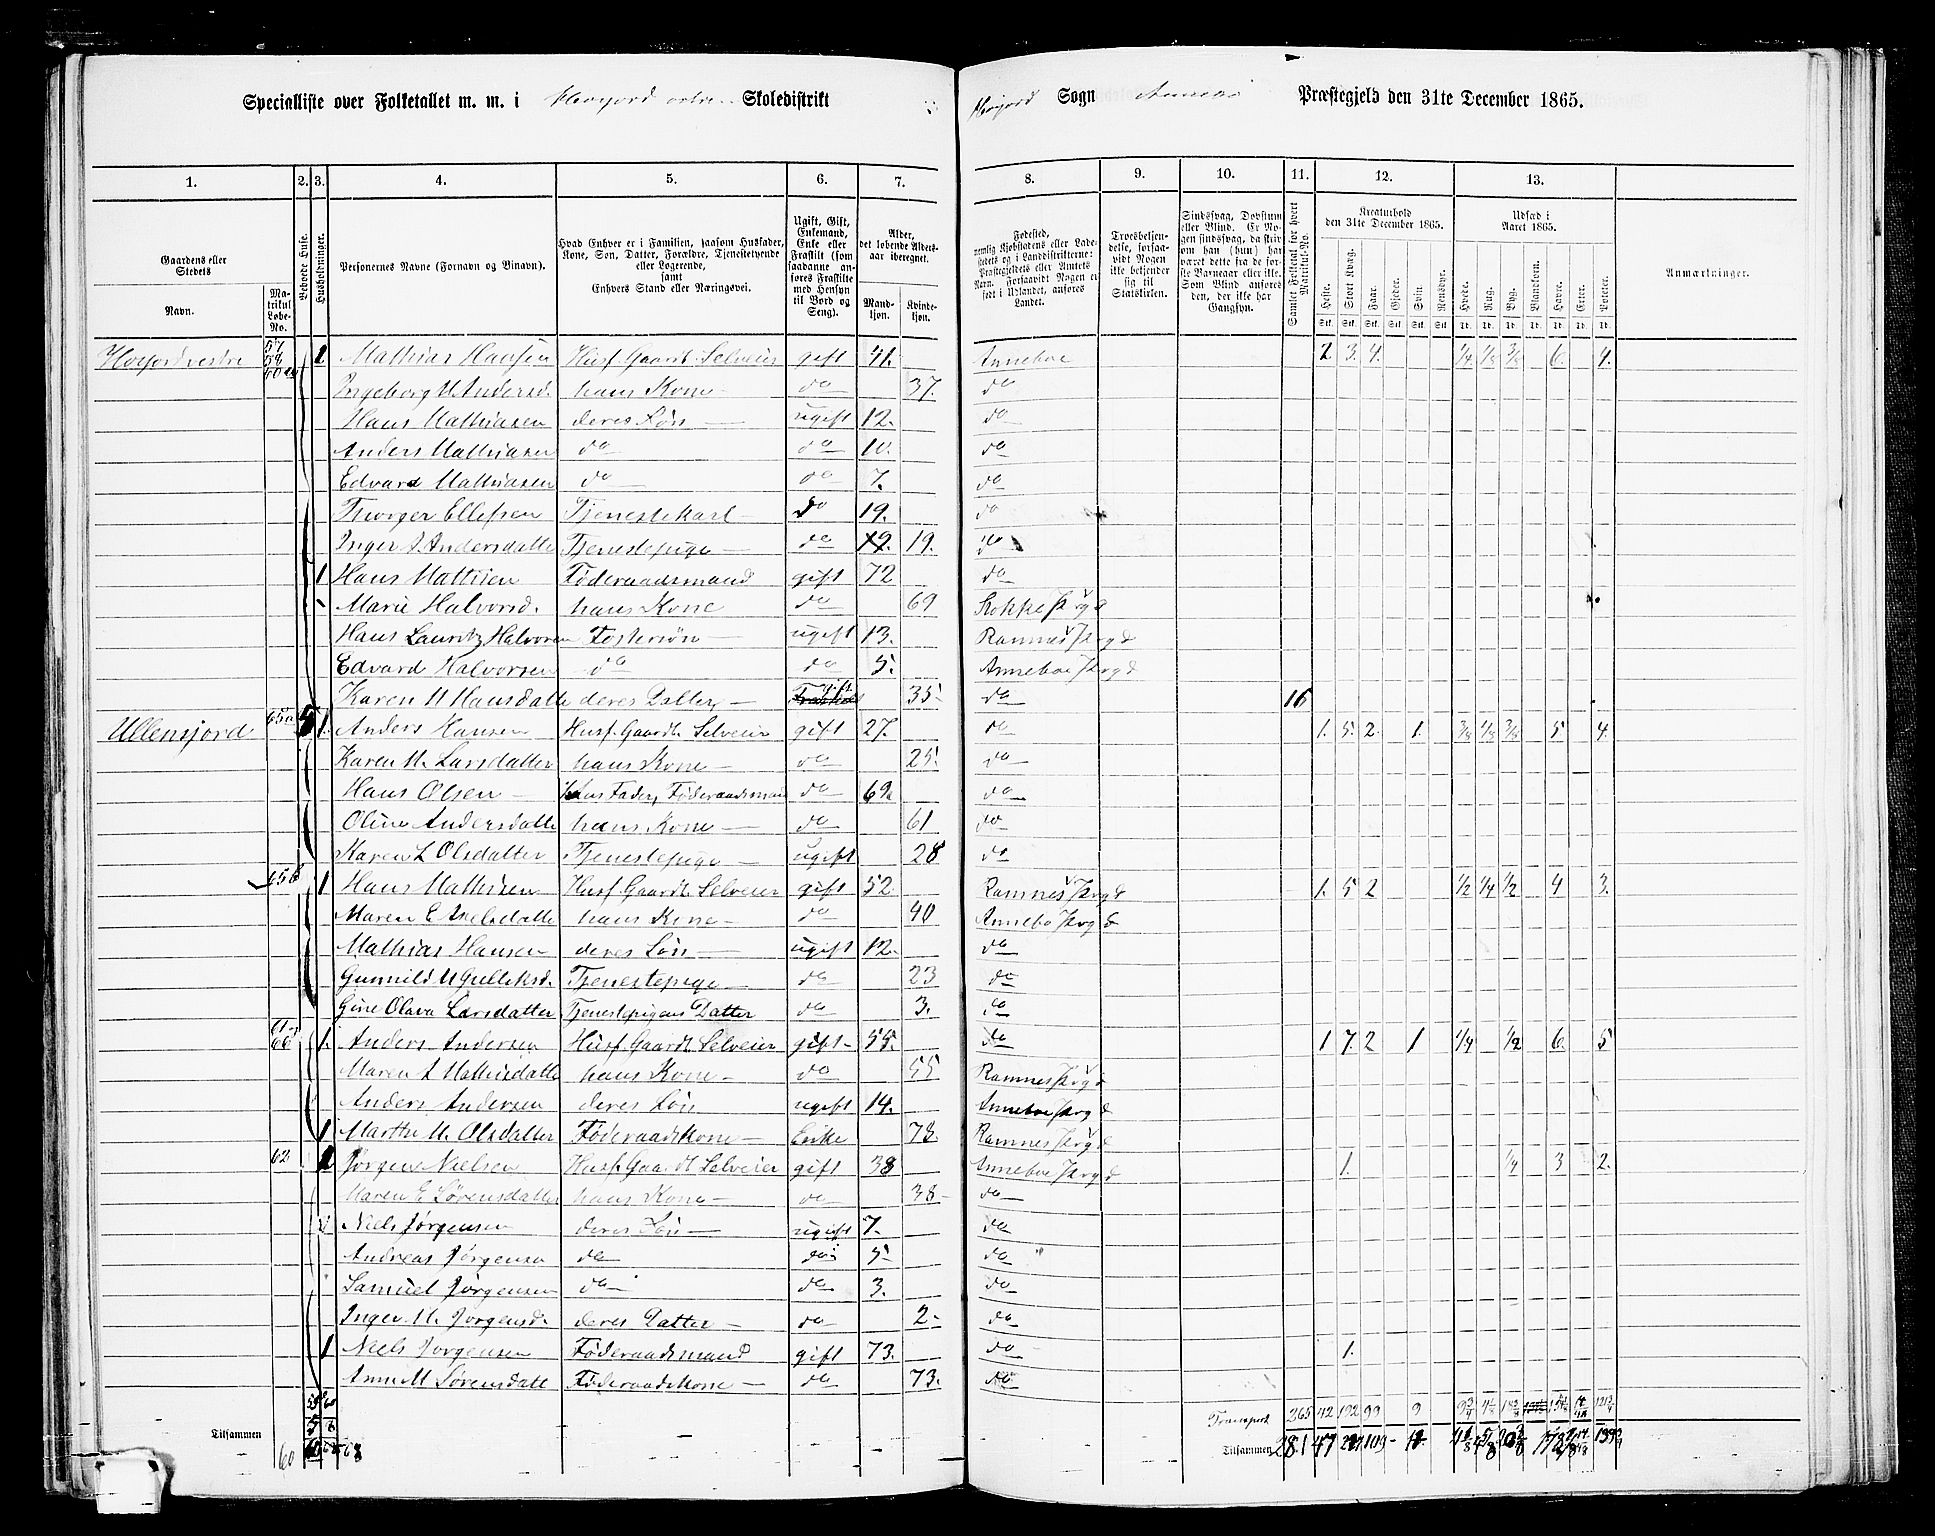 Specialliste over Folketallet m. m. i Skoledistrikt
Sogn Præstegjeld den 31te December 1865.
1. 2. 3. 4. 5. 6. 7. 8. 9. 10. 11. 12. 13.
Gaardens eller Stedets
Navn.
Matrikul Løbe-No.
Beboede Huse.
Husholdninger.
Personernes Navne (Fornavn og Binavn).
Hvad Enhver er i Familien, saasom Husfader, Kone, Søn, Datter, Forældre, Tjenestetyende eller Logerende, samt Enhvers Stand eller Næringsvei.
Ugift, Gift, Enkemand, Enke eller Fraskilt (som saadanne anføres Fraskilte med Hensyn til Bord og Seng).
Alder, det løbende Alders-aar iberegnet.
Mandkjøn. Kvindekjøn.
Fødested, nemlig Kjøbstedens eller Ladestedets og i Landdistrikterne: Præstegjeldets eller Amtets Navn. Forsaavidt Nogen er født i Udlandet, anføres Landet.
Troesbekjendelse, forsaavidt Nogen ikke bekjender sig til Statskirken.
Sindssvag, Døvstum eller Blind. Er Nogen sindssvag, da skrives om han (hun) har været dette fra de første Barneaar eller ikke. Som Blind anføres den, der ikke har Gangsyn.
Samlet Folketal for hvert Matrikul-No.
Kreaturhold den 31te December 1865.
Heste. Stort Kvæg. Faar. Gjeder. Svin. Rensdyr.
Udsæd i Aaret 1865.
Hvede. Rug. Byg. Blandkorn. Havre. Erter. Poteter.
Anmærkninger.
Hovjord vestre 57 58 1 Mathias Hansen Husf. Gaardb. Selveier gift 41. Anneboe 2 3. 4. 1/4 1/8 6. 4.
Ingeborg M Andersd. hans Kone do 37. do
Hans Mathiasen deres Søn ugift 12. do
Anders Mathiasen do do 10. do
Edvard Mathiasen do do 7. do
Thorger Ellefsen Tjenestekarl do 19. do
Inger A Andersdatte Tjenestepige do 19. do
1 Hans Mathisen Føderaadsmand gift 72 do
Marie Halvorsd. hans Kone do 69 Stokke Prgd
Hans Lauritz Halvorsen Fostersøn ugift 13. Ramnes Prgd
Edvard Halvorsen do do 5. Anneboe Prgd
Karen M Hansdatte deres Datter gift 35 do 16
Ullensfjord 65a 5 1. Anders Hansen Husf. Gaardb. Selveier gift 27. do 1. 5. 2. 1. 3/8 1/8 3/4 5 4.
Karen M. Larsdatter hans Kone do 25. do
Hans Olsen hans Fader, Føderaadsmand do 69. do
Oline Andersdatte hans Kone do 61 do
Maren L Olsdatter Tjenestepige ugift 28 do
65b 1 Hans Mathisen Husf. Gaardb. Selveier gift 52 Ramnes Prgd 1. 5 2 1/2 1/4 1/2 4 3.
Maren E Axelsdatte hans Kone do 40 Annebo Prgd
Mathias Hansen deres Søn ugift 12. do
Gunnild M Gulleksd. Tjenestepige do 23 do
Gine Olava Larsdatter Tjenestepigens Datter do 3. do
61 66 1. Anders Andersen Husf. Gaardb. Selveier gift 55. do 1 7. 2 1 1/4 1/2 6. 5
Maren A Mathisdatte hans Kone do 55 Ramnes Prgd
Anders Andersen deres Søn ugift 14. Anneboe Prgd
1 Marthe M. Olsdatter Føderaadskone Enke 78. Ramnes Prgd
62 1 Jørgen Nielsen Husf. Gaardb. Selveier gift 38 Anneboe Prgd 1. 1/4 3 2.
Maren E Sørensdatter hans Kone do 38 do
Niels Jørgensen deres Søn ugift 7. do
Andreas Jørgensen do do 5 do
Samuel Jørgensen do do 3. do
Inger M. Jørgensd. deres Datter do 2 do
1 Niels Jørgensen Føderaadsmand gift 73. do 1.
Anne M Sørensdatt Føderaadskone do 73. do
Transport 265 42 192 99 9
Tilsammen 60 68 Tilsammen 281 47